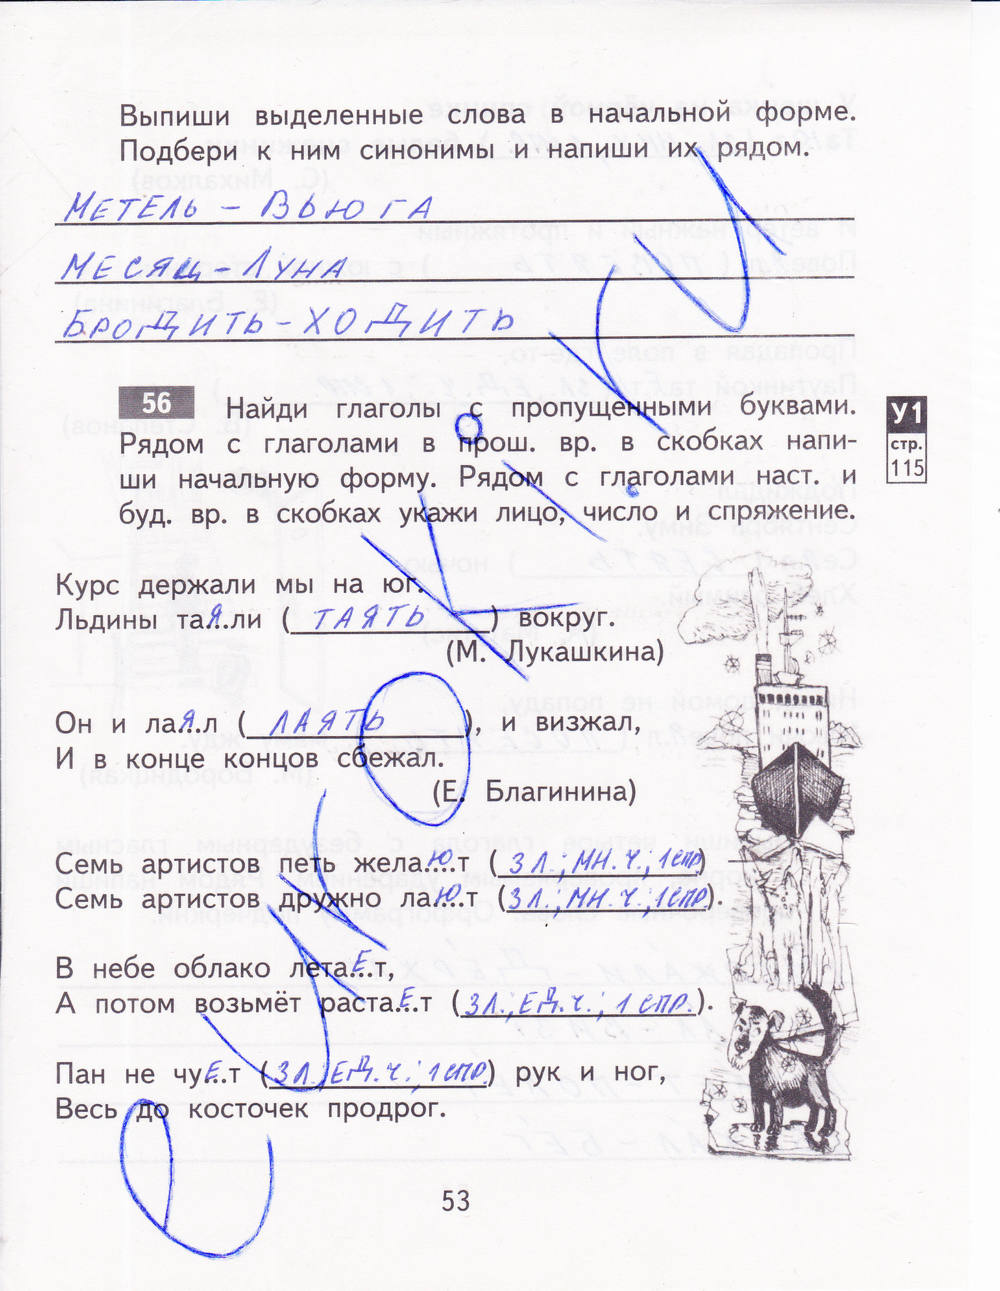 Выпиши выделенные слова в начальной форме.
Подбери к ним синонимы и напиши их рядом.
МЕТЕЛЬ - ВЬЮГА
МЕСЯЦ - ЛУНА
БРОДИТЬ - ХОДИТЬ
56 Найди глаголы с пропущенными буквами.
Рядом с глаголами в прош. вр. в скобках напи-
ши начальную форму. Рядом с глаголами наст. и
буд. вр. в скобках укажи лицо, число и спряжение.
У1
стр.
115
Курс держали мы на юг.
Льдины таЯ..ли (ТАЯТЬ) вокруг.
(М. Лукашкина)
Он и лаЯ.л (ЛАЯТЬ), и визжал,
И в конце концов сбежал.
(Е. Благинина)
Семь артистов петь желаЮ..т (3 Л., МН. Ч., 1 СПР)
Семь артистов дружно лаЮ..т (3 Л., МН. Ч., 1 СПР).
В небе облако летаЕ..т,
А потом возьмёт растаЕ..т (3 Л., ЕД. Ч., 1 СПР.).
Пан не чуЕ..т (3 Л., ЕД. Ч., 1 СПР) рук и ног,
Весь до косточек продрог.
53
еуроки.ru